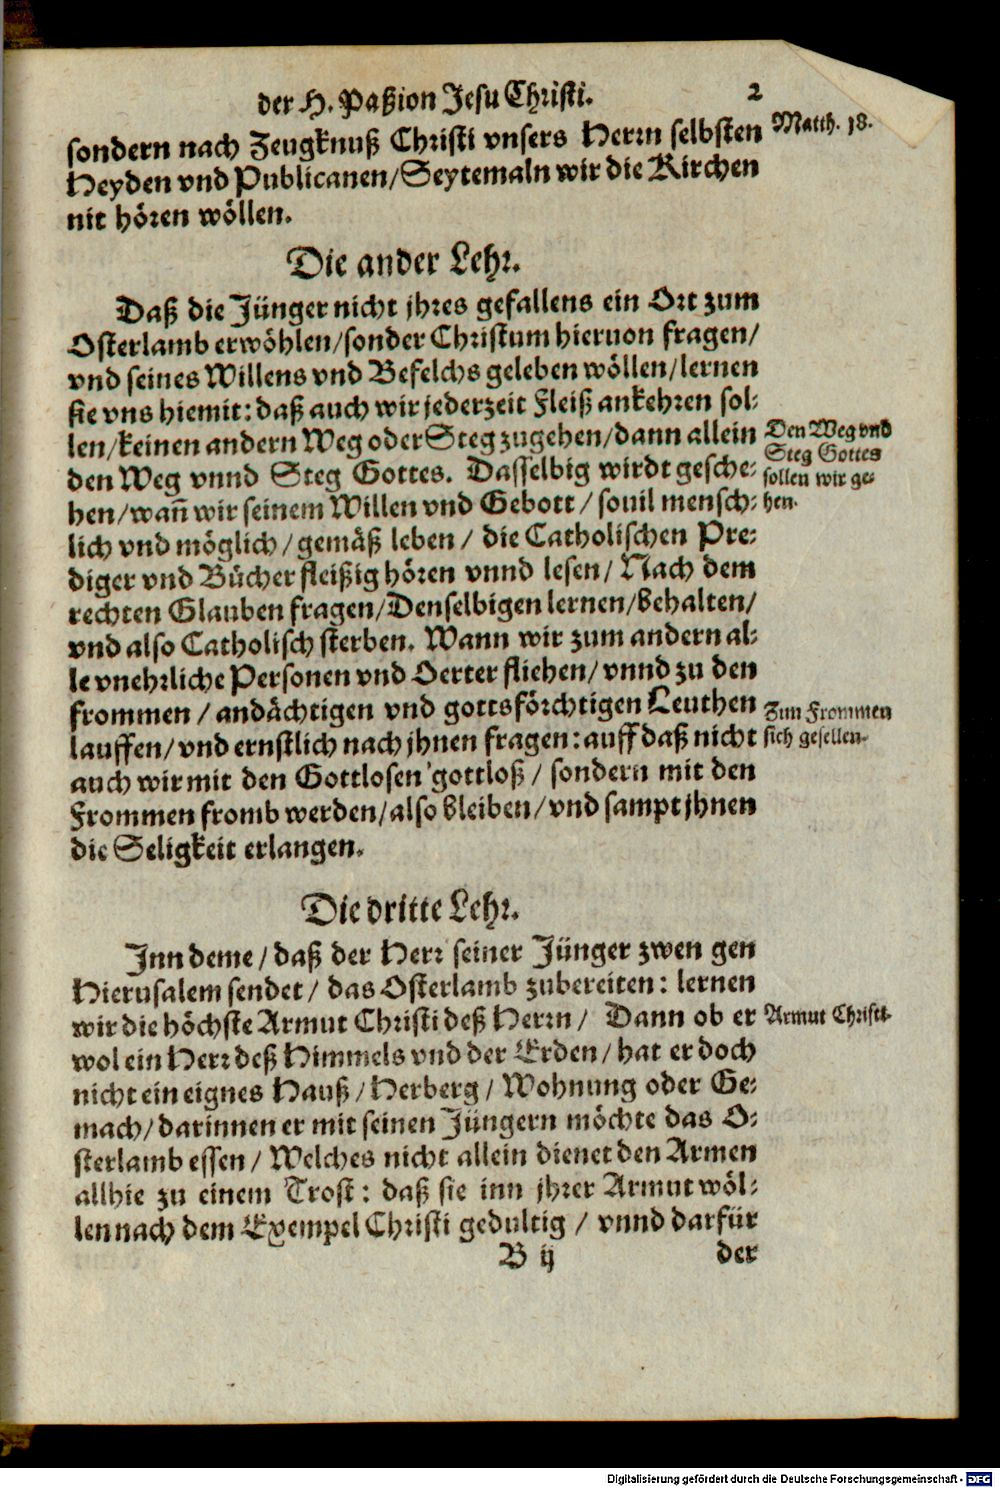 der H. Paßion Jesu Christi. 2
sondern nach Zeugknuß Christi vnsers Herrn selbsten
Matth. 18.
Heyden vnd Publicanen/Seytemaln wir die Kirchen
nit hören wöllen.
Die ander Lehr.
Daß die Jünger nicht jhres gefallens ein Ort zum
Osterlamb erwöhlen/sonder Christum hieruon fragen/
vnd seines Willens vnd Befelchs geleben wöllen/lernen
sie vns hiemit: daß auch wir jederzeit Fleiß ankehren sol-
len/keinen andern Weg oder Steg zugehen/dann allein
den Weg vnnd Steg Gottes. Dasselbig wirdt gesche-
hen/wañ wir seinem Willen vnd Gebott/souil mensch-
Den Weg vnd
Steg Gottes
sollen wir ge-
hen.
lich vnd möglich/gemäß leben/ die Catholischen Pre-
diger vnd Bücher fleißig hören vnnd lesen/Nach dem
rechten Glauben fragen/Denselbigen lernen/behalten/
vnd also Catholisch sterben. Wann wir zum andern al-
le vnehrliche Personen vnd Oerter fliehen/vnnd zu den
frommen/andächtigen vnd gottsförchtigen Leuthen
lauffen/vnd ernstlich nach jhnen fragen: auff daß nicht
Zun Frommen
sich gesellen.
auch wir mit den Gottlosen gottloß/sondern mit den
Frommen fromb werden/also bleiben/vnd sampt jhnen
die Seligkeit erlangen.
Die dritte Lehr.
Inn deme/daß der Herr seiner Jünger zwen gen
Hierusalem sendet/das Osterlamb zubereiten: lernen
wir die höchste Armut Christi deß Herrn/ Dann ob er
Armut Christi.
wol ein Herr deß Himmels vnd der Erden/hat er doch
nicht ein eignes Hauß/Herberg/Wohnung oder Ge-
mach/darinnen er mit seinen Jüngern möchte das O-
sterlamb essen/Welches nicht allein dienet den Armen
allhie zu einem Trost: daß sie inn jhrer Armut wöl-
len nach dem Exempel Christi gedultig/vnnd darfür
B ij der
Digitalisierung gefördert durch die Deutsche Forschungsgemeinschaft - DFG